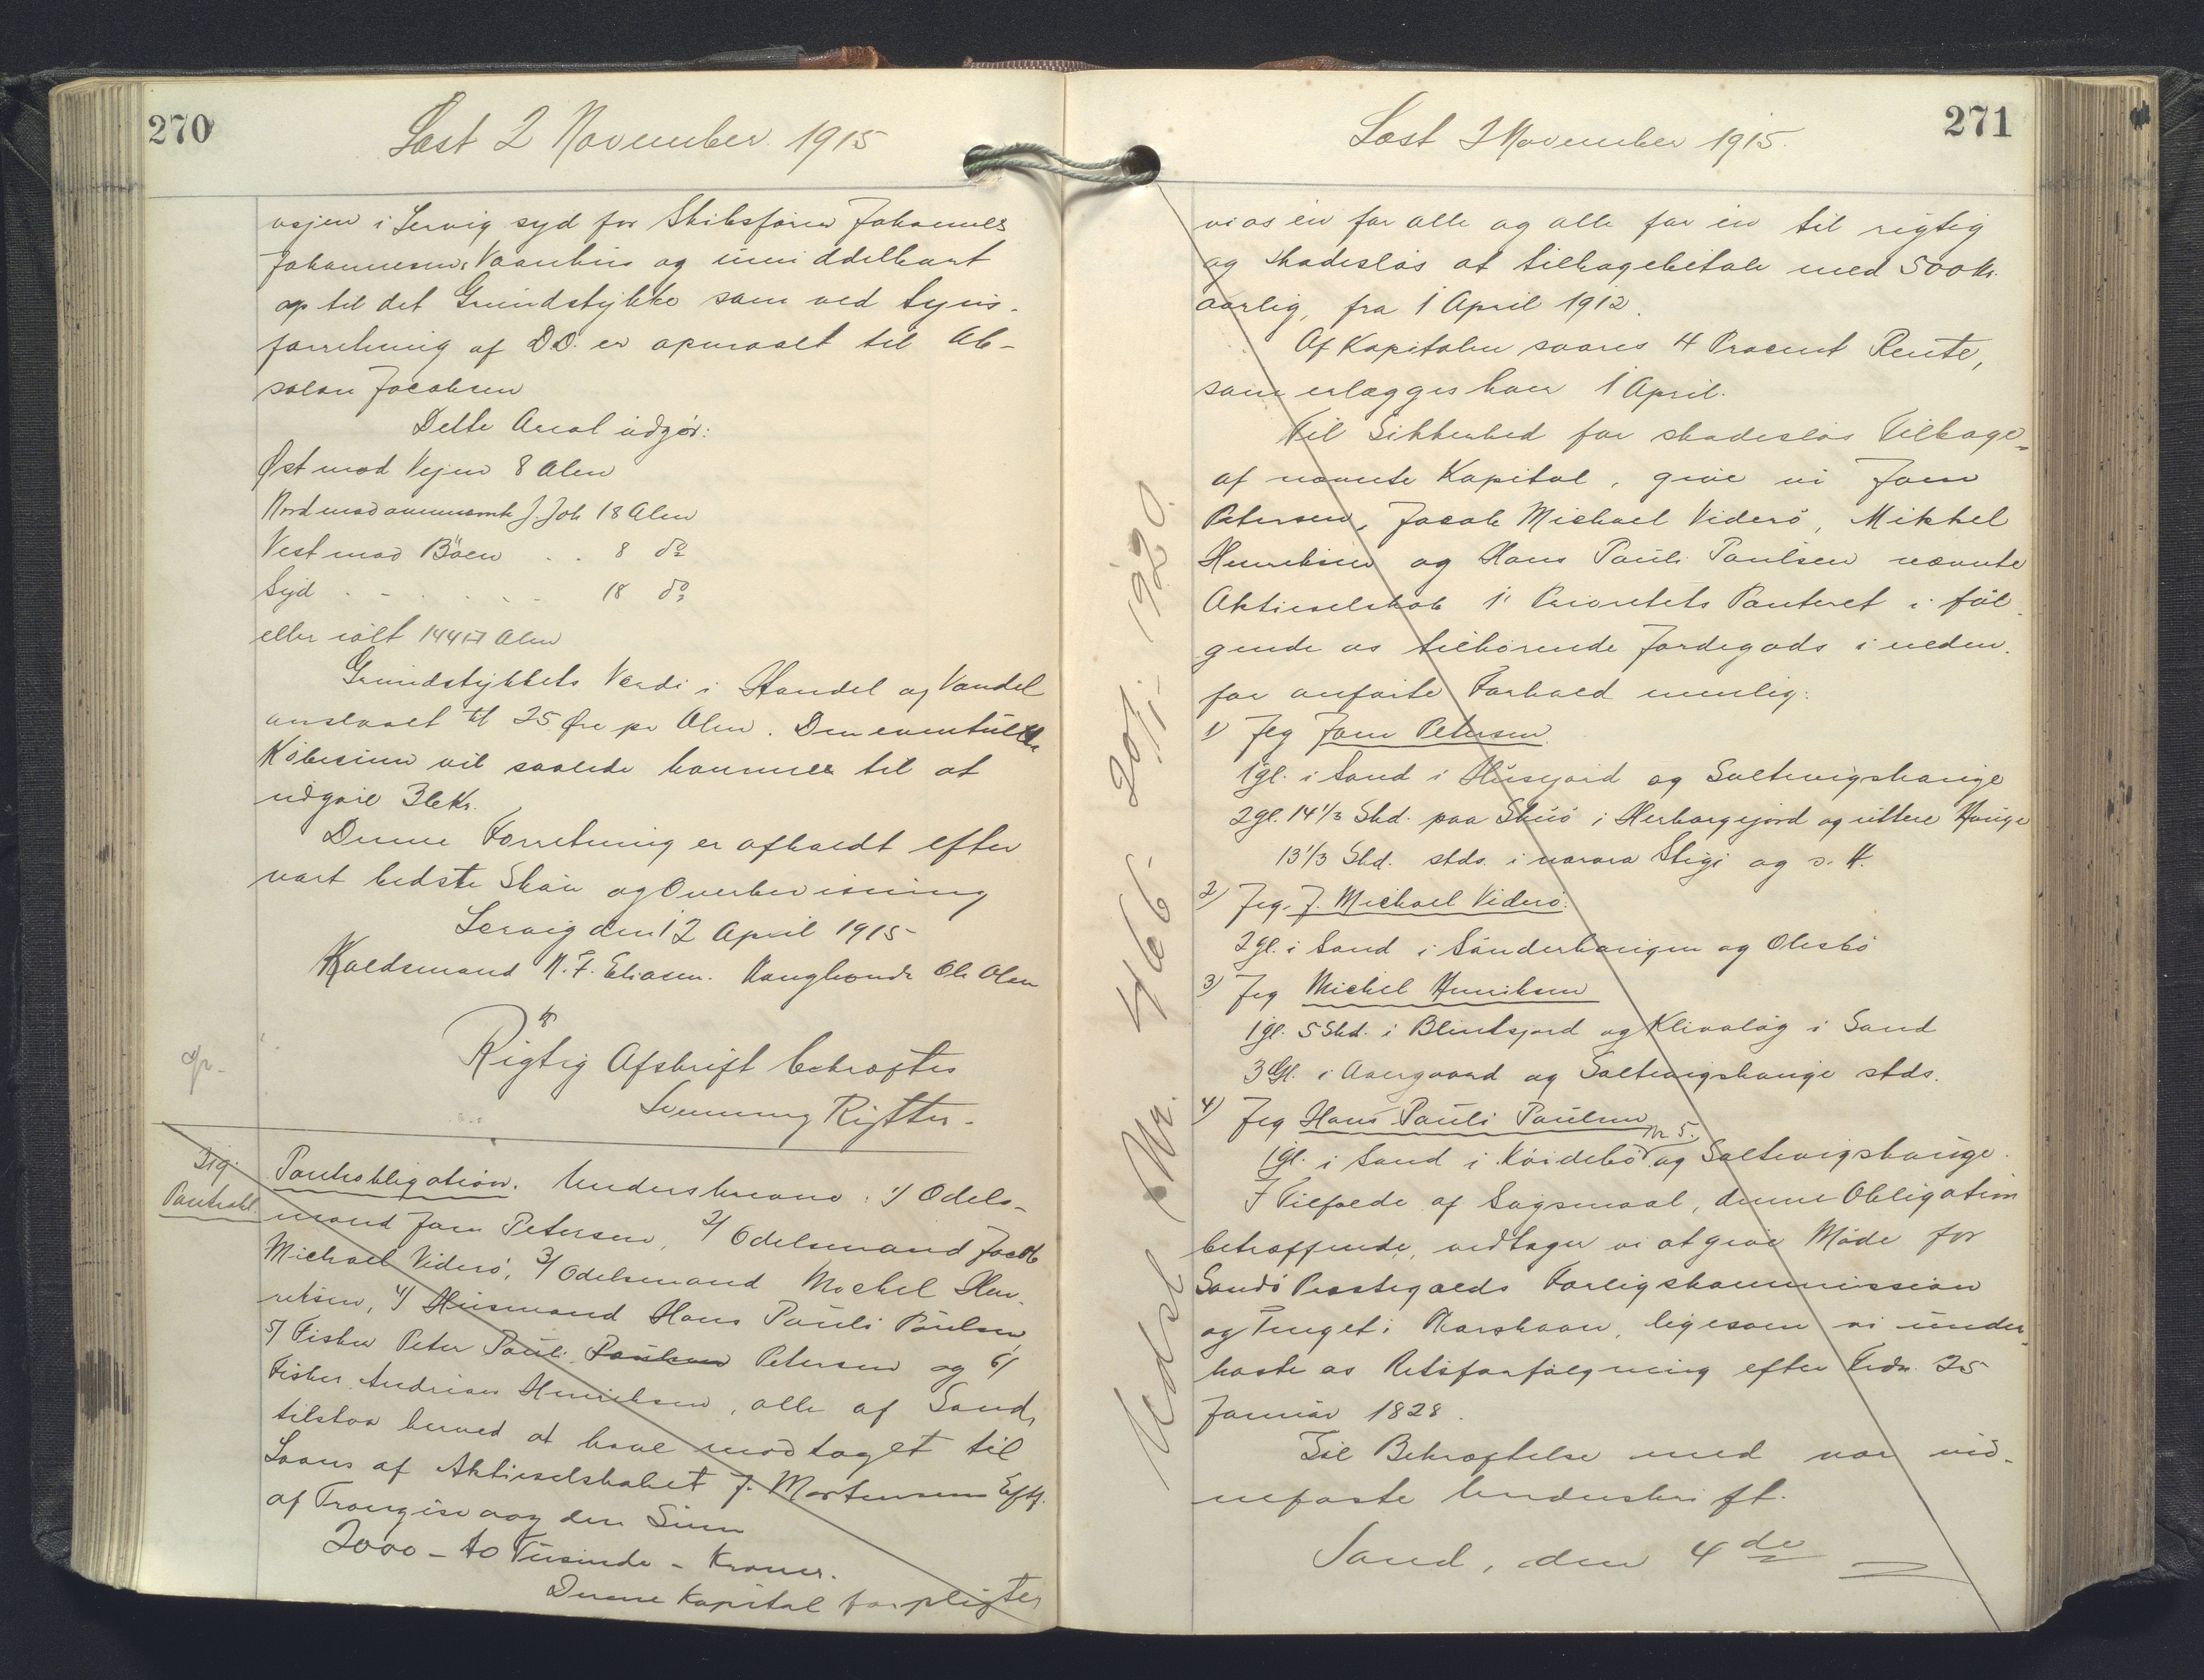 270
Læst 2 November 1915
vejen i Lervig syd for Skibsfører Johannes
Johannesens Vaanhus og umiddelbart
op til det Grundstykke som ved Syns-
forretning af D.D. er opmaalt til Ab-
salon Jacobsen
Dette Areal udgør:
Øst mod Vejen 8 Alen
Nord mod J. Joh 18 Alen
Vest mod Bøen . . 8 do
Syd . . . . . . 18 do
eller ialt 144 □ Alen
Grundstykkets Værdi i Handel og Vandel
anslaaet til 25 Øre pr Alen. Den eventuelle
Købesum vil saalede kommer til at
udgøre 36 Kr.
Denne Forretning er afholdt efter
vort bedste Skøn og Overbevisning
Lervig den 12 April 1915
Kaldsmand N. F. Eliasen. Kongbonde Ole Olsen
Rigtig Afskrift bekræftes
Svenning Rytter.
319.
Pantobl.
Pantobligation. Underskrevne: 1/ Odels-
mand Joen Petersen, 2/ Odelsmand Jacob
Michael Viderø, 3/ Odelsmand Michel Hen-
riksen, 4/ Husmand Hans Pauli Poulsen,
5/ Fisker Peter Pauli Poulsen Petersen og 6/
Fisker Andrias Henriksen, alle af Sand,
tilstaa herved at have modtaget til
Laans af Aktieselskabet J. Mortensens Eftf.
af Trangisvaag den Sum
2000 - to Tusinde - Kroner.
Denne Kapital forpligter
271
Læst 2 November 1915.
vi os én for alle og alle for én til rigtig
og skadesløs at tilbagebetale med 500 Kr.
aarlig, fra 1 April 1912.
Af Kapitalen svares 4 Procent Rente,
som erlægges hver 1 April.
Til Sikkerhed for skadesløs Tilbage-
af nævnte Kapital, give vi Joen
Petersen, Jacob Michael Viderø, Mikkel
Henriksen og Hans Pauli Poulsen nævnte
Aktieselskab 1' Prioritets Panteret i føl-
gende os tilhørende Jordegods i neden-
for anførte Forhold nemlig:
1) Jeg Joen Petersen
1 gl. i Sand i Husejord og Saltvigshauge
2 gl. 14 1/3 Skd. paa Skuø i Herbargejord og uttere Hauge
13 1/3 Skd. stds. i Stigi og s. H.
2) Jeg J. Michael Viderø.
2 gl. i Sand i Sønderhaugen og Olesbø
3) Jeg Michel Henriksen
1 gl. 5 Skd. i Blindsjord og Klivaløg i Sand
3 Gl. i Aargaard og Saltvigshauge stds.
4) Jeg Hans Pauli Poulsen
Nr 5.
1 gl. i Sand i Køidebø og Saltvigshauge.
I Tilfælde af Søgsmaal, denne Obligation
betræffende, vedtager vi at give Møde for
Sandø Præstegælds Forligskommission
og Tinget i Thorshavn, ligesom vi under-
kaste os Retsforfølgning efter Frdn. 25
Januar 1828.
Til Bekræftelse med vor vid-
nefaste Underskrift.
Sand, den 4de
Udsl. Nr. 466. 20/11 1920.